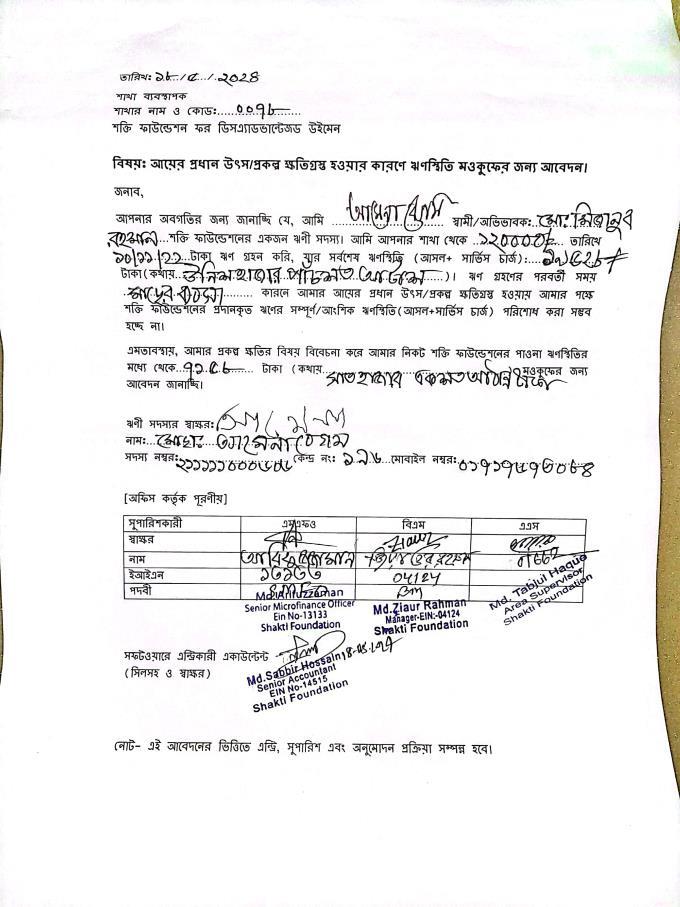 তারিখ: ১৮/৫/২০২৪
শাখা ব্যবস্থাপক
শাখার নাম ও কোড:........০০৭৮........
শক্তি ফাউন্ডেশন ফর ডিসএ্যাডভান্টেজড উইমেন
বিষয়ঃ আয়ের প্রধান উৎস/প্রকল্প ক্ষতিগ্রস্ত হওয়ার কারণে ঋণস্থিতি মওকুফের জন্য আবেদন।
জনাব,
আপনার অবগতির জন্য জানাচ্ছি যে, আমি ........আমেনা বেগম........ স্বামী/অভিভাবক:...মোঃ মিজানুর
রহমান...শক্তি ফাউন্ডেশনের একজন ঋণী সদস্য। আমি আপনার শাখা থেকে ...১২০০০০৳... তারিখে
১০/১১/২২...টাকা ঋণ গ্রহন করি, যার সর্বশেষ ঋণস্থিতি (আসল+ সার্ভিস চার্জ):....১৯৫২৮৳
টাকা(কথায়....উনিশ হাজার পাঁচশত আটাশ....)। ঋণ গ্রহণের পরবর্তী সময়
............ কারনে আমার আয়ের প্রধান উৎস/প্রকল্প ক্ষতিগ্রস্ত হওয়ায় আমার পক্ষে
শক্তি ফাউন্ডেশনের প্রদানকৃত ঋণের সম্পূর্ণ/আংশিক ঋণস্থিতি(আসল+সার্ভিস চার্জ) পরিশোধ করা সম্ভব
হচ্ছে না।
এমতাবস্থায়, আমার প্রকল্প ক্ষতির বিষয় বিবেচনা করে আমার নিকট শক্তি ফাউন্ডেশনের পাওনা ঋণস্থিতির
মধ্যে থেকে..৭১৫৮.... টাকা (কথায়...সাত হাজার একশত আটান্ন টাকা...)মওকুফের জন্য
আবেদন জানাচ্ছি।
ঋণী সদস্যর স্বাক্ষর: আমেনা
নাম:...মোছাঃ আমেনা বেগম
সদস্য নম্বর: কেন্দ্র নং: ১২৬ ...মোবাইল নম্বর:
[অফিস কর্তৃক পূরণীয়]
সুপারিশকারী এমএফও বিএম এএস
স্বাক্ষর Ziaur
নাম আরিফুজ্জামান জিয়াউর রহমান
ইআইএন ১৩১৩৩ 04124
পদবী BM
Md. Arifuzzaman
Senior Microfinance Officer
Ein No-13133
Shakti Foundation
Md. Ziaur Rahman
Manager-EIN:-04124
Shakti Foundation
Md. Tabjul Haque
Area Supervisor
Shakti Foundation
সফটওয়ারে এন্ট্রিকারী একাউন্টেন্ট
(সিলসহ ও স্বাক্ষর)
Md. Sabbir Hossain
Senior Accountant
EIN No-14515
Shakti Foundation
নোট- এই আবেদনের ভিত্তিতে এন্ট্রি, সুপারিশ এবং অনুমোদন প্রক্রিয়া সম্পন্ন হবে।